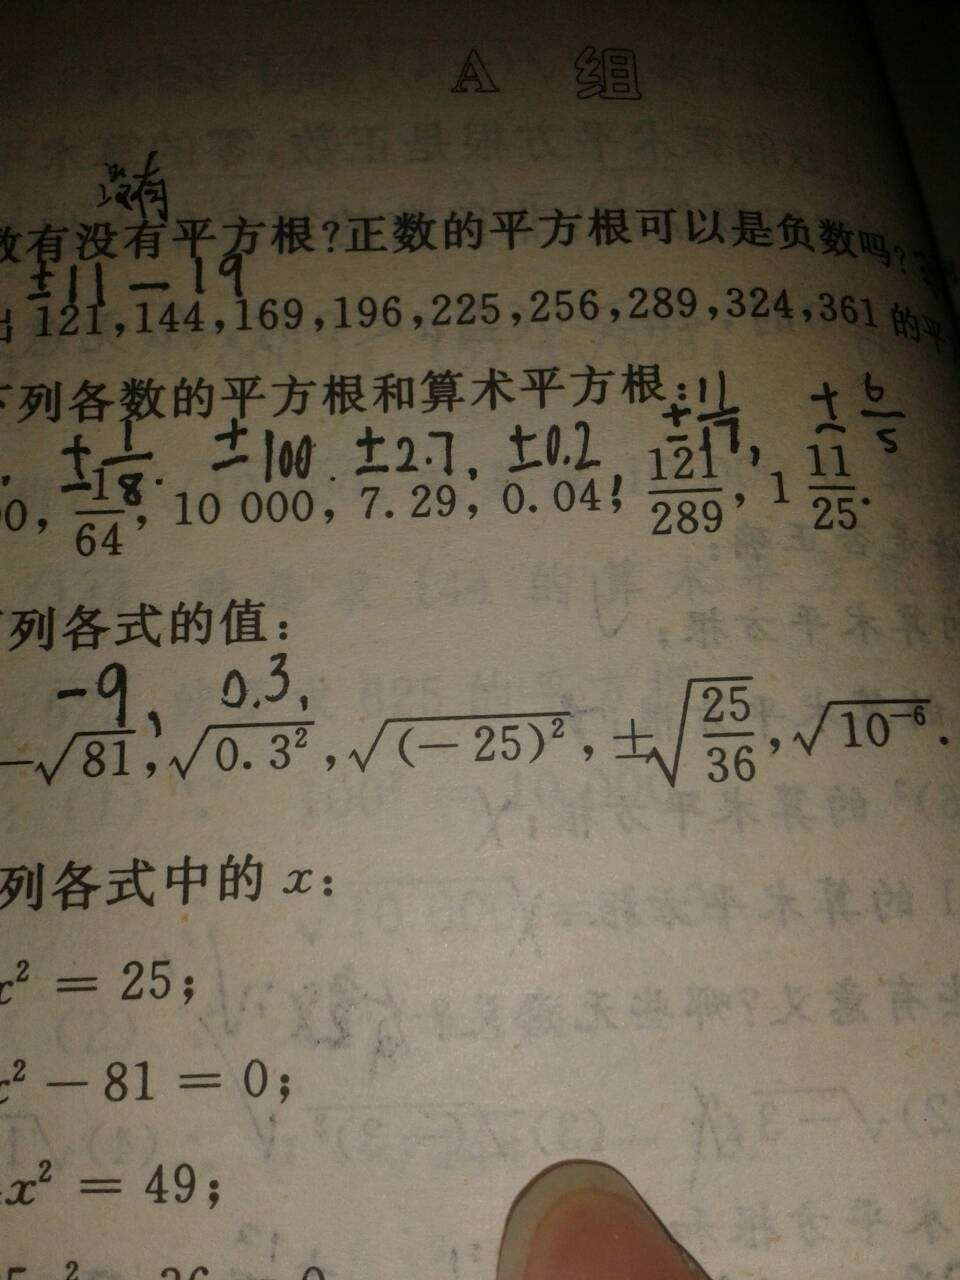 A 组
没有
数有没有平方根?正数的平方根可以是负数吗?
±11 — 19
出 121,144,169,196,225,256,289,324,361 的平
下列各数的平方根和算术平方根:
±1/8. ±100. ±2.7, ±0.2 ±11/17, ±6/5
00, 1/64, 10 000, 7.29, 0.04, 121/289, 1 11/25.
下列各式的值:
-9, 0.3,
-√81, √0.3², √(-25)², ±√25/36, √10⁻⁶.
列各式中的 x:
x² = 25;
x² - 81 = 0;
x² = 49;